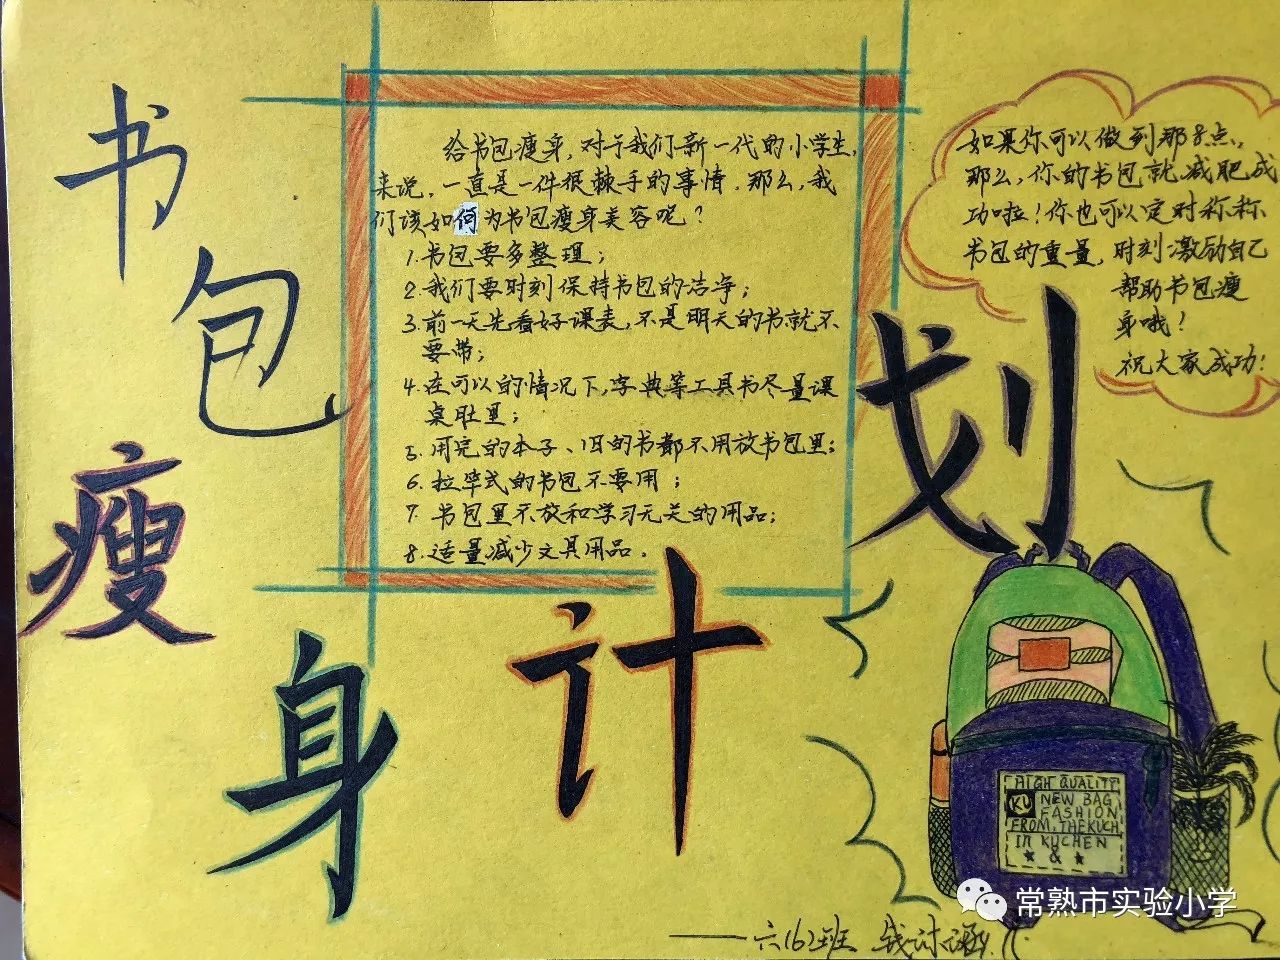 书包瘦身计划
给书包瘦身，对于我们新一代的小学生，
来说，一直是一件很棘手的事情。那么，我
们该如何为书包瘦身美容呢？
1.书包要多整理；
2.我们要时刻保持书包的洁净；
3.前一天先看好课表，不是明天的书就不
要带；
4.在可以的情况下，字典等工具书尽量课
桌肚里；
5.用完的本子、旧的书都不用放书包里；
6.拉竿式的书包不要用；
7.书包里不放和学习无关的用品；
8.适量减少文具用品。
如果你可以做到那8点，
那么，你的书包就减肥成
功啦！你也可以定时称称
书包的重量，时刻激励自己
帮助书包瘦
身哦！
祝大家成功！
HIGH QUALITY
KU NEW BAG
FASHION
FROM.THEKUCH
IN KUCHEN
&
常熟市实验小学
——六(6)班